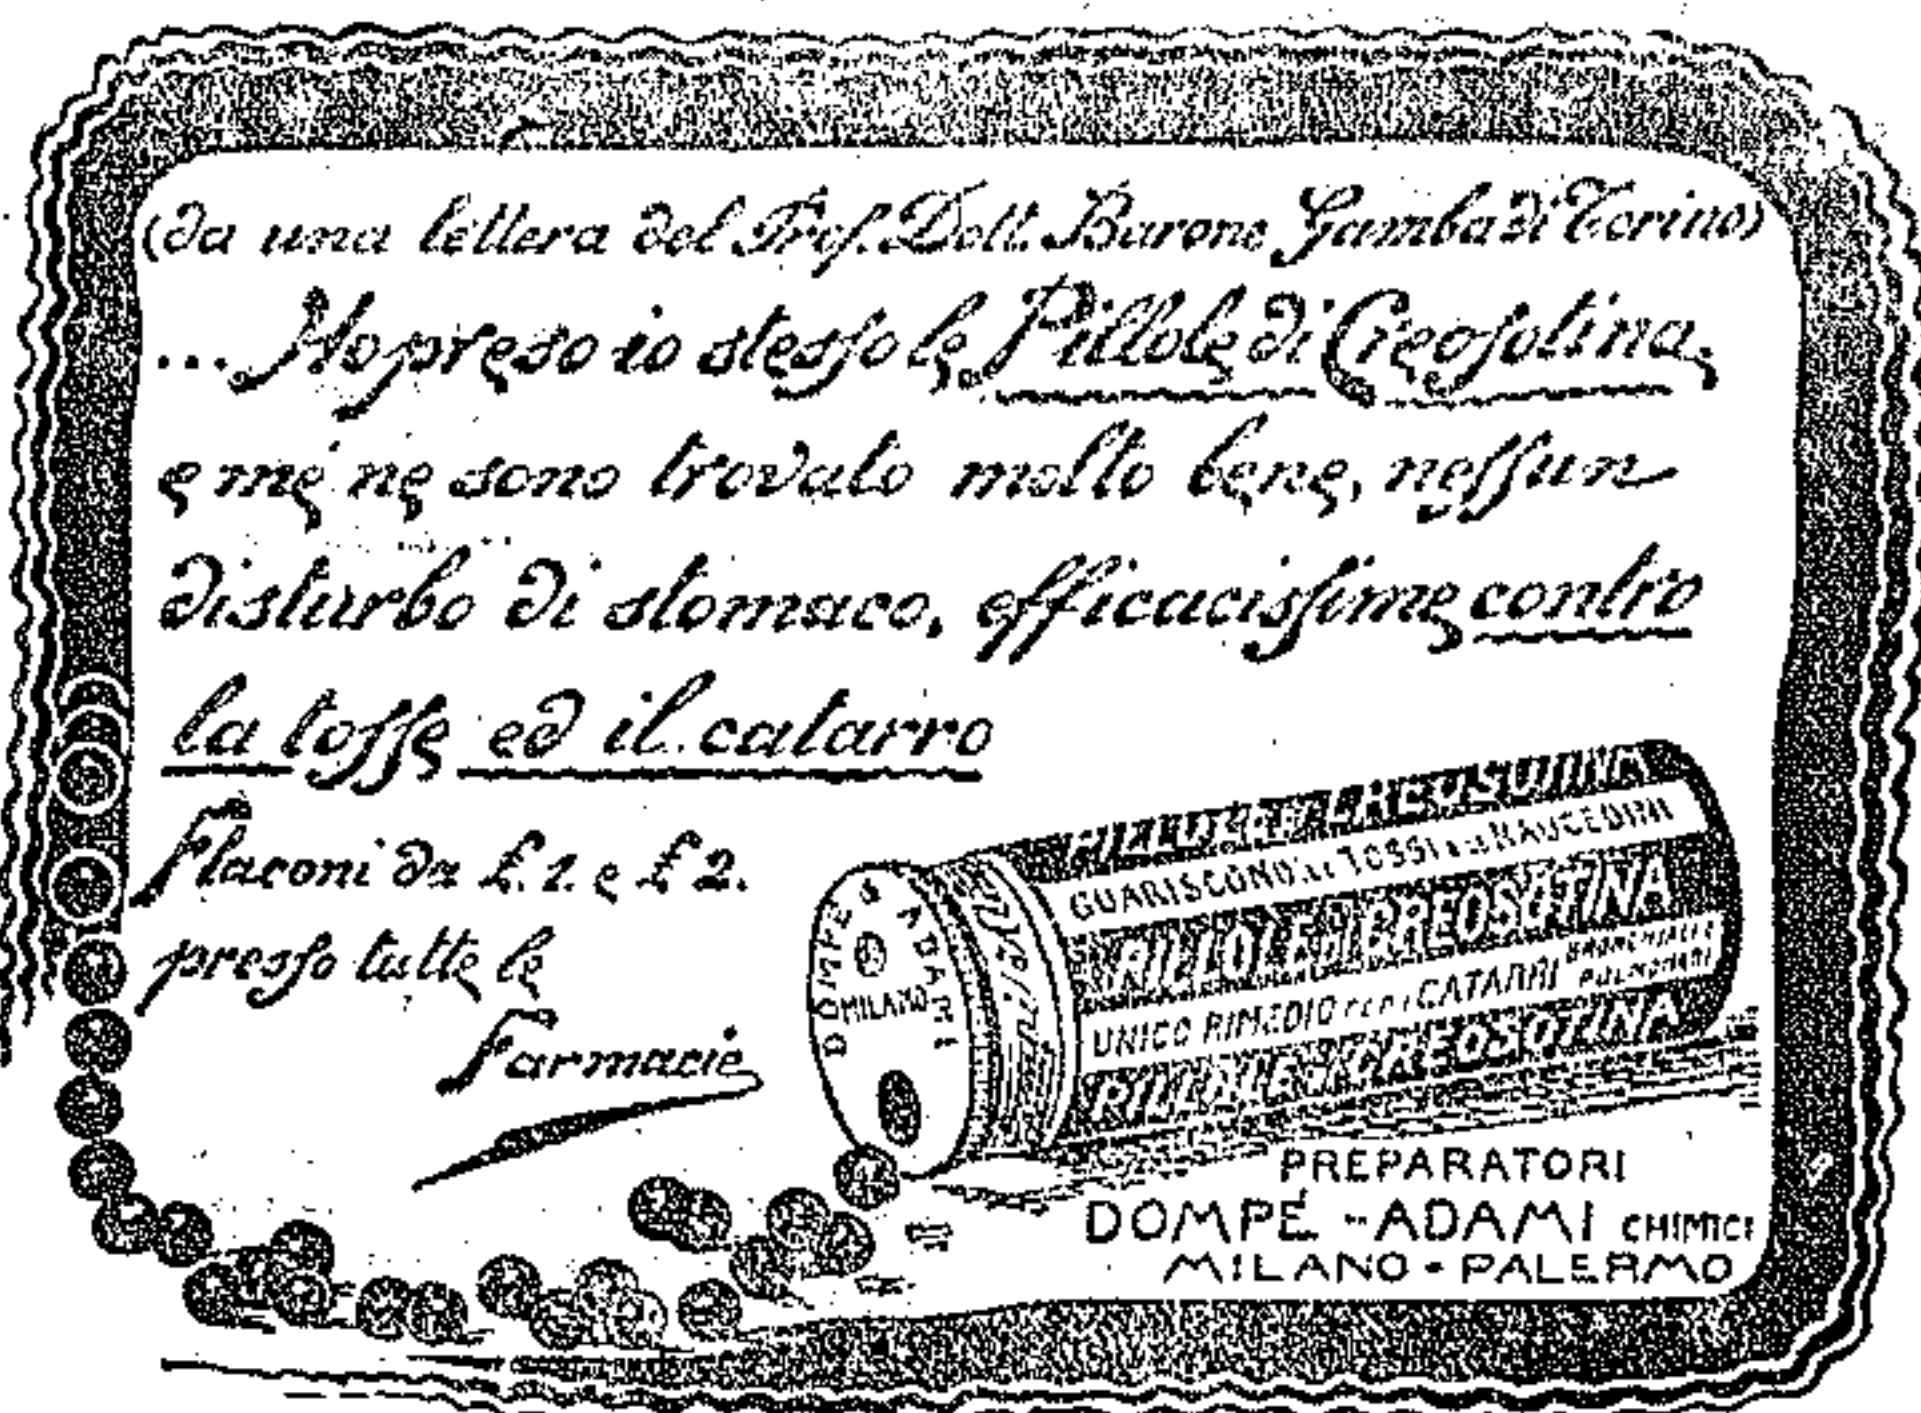 (da una lettera del Prof. Dott. Barone Gamba di Torino)
... Ho preso io stesso le Pillole di Creosotina,
e me ne sono trovato molto bene, nessun
disturbo di stomaco, efficacissime contro
la tosse ed il catarro
Flaconi da £. 1. e £ 2.
presso tutte le
Farmacie
PILLOLE DI CREOSOTINA
GUARISCONO LE TOSSI E LE RAUCEDINI
PILLOLE DI CREOSOTINA
UNICO RIMEDIO PER I CATARRI BRONCHIALI E PULMONARI
PILLOLE DI CREOSOTINA
DOMPÉ & ADAMI
MILANO
PREPARATORI
DOMPÉ - ADAMI CHIMICI
MILANO - PALERMO